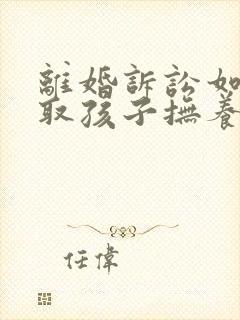 離婚訴訟如
取孩子撫養
任偉